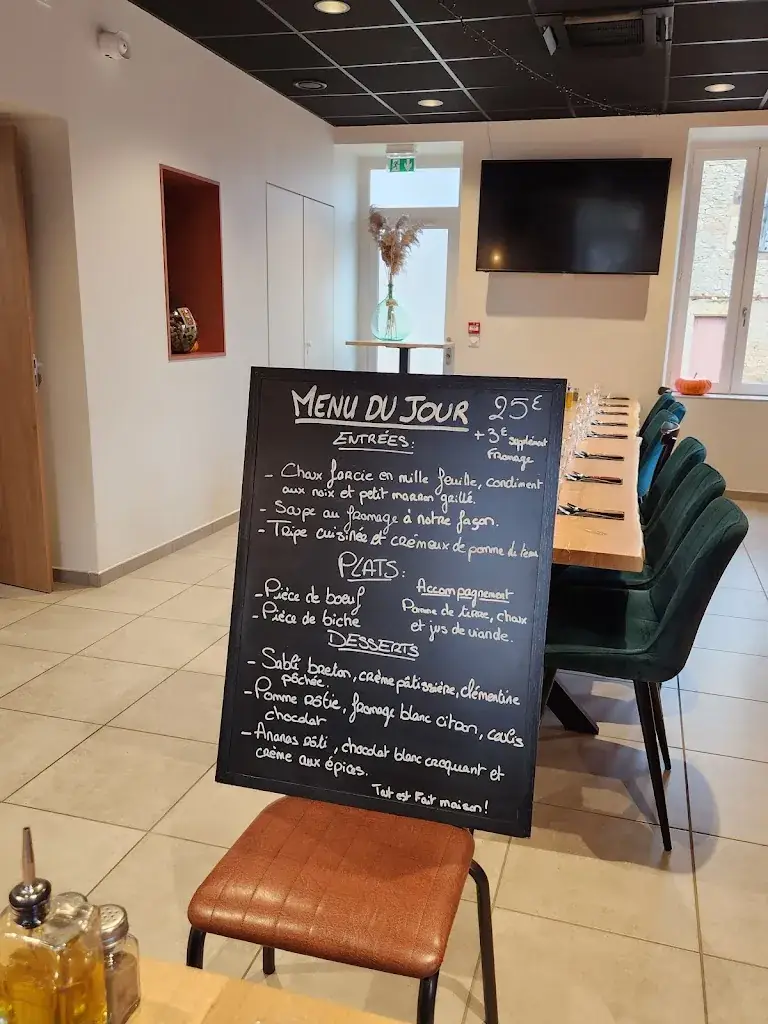 MENU DU JOUR 25€
+3€ supplément
Fromage
ENTRÉES:
- Chou farcie en mille feuille, condiment
aux noix et petit marron grillé.
- Soupe au fromage à notre façon.
- Tripe cuisinée et crémeux de pomme de terre
PLATS:
- Pièce de boeuf
- Pièce de biche
Accompagnement
Pomme de terre, choux
et jus de viande.
DESSERTS
- Sablé breton, crème pâtissière, clémentine
pochée.
- Pomme rôtie, fromage blanc citron, coulis
chocolat
- Ananas rôti, chocolat blanc croquant et
crème aux épices.
Tout est Fait maison!